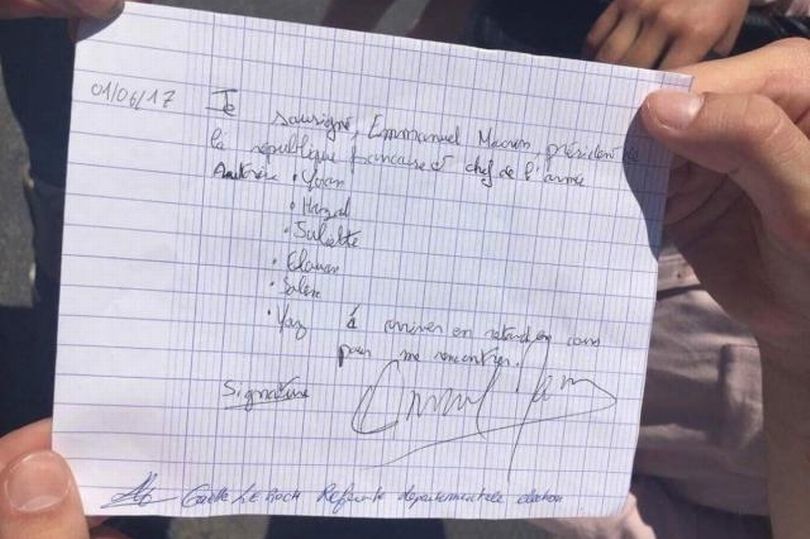 01/06/17
Je
sousigné, Emmanuel Macron, président de
la république francaise et chef de l'armée
Autorise • Yoan
•
• Juliette
•
•
• Yaz à arriver en retard en cours
pour me rencontrer.
Signature
Gaëlle LE ROCH Référente départementale election